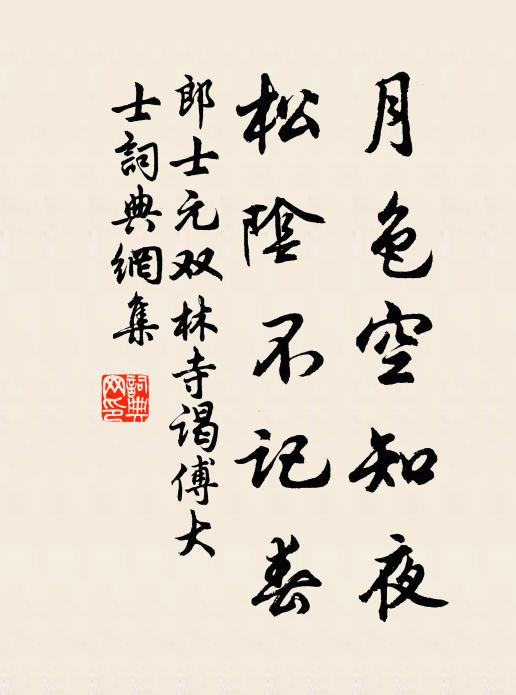 月色空知夜
松陰不记春
郎士元双林寺谒傅大
士詞典網集
詞典網印